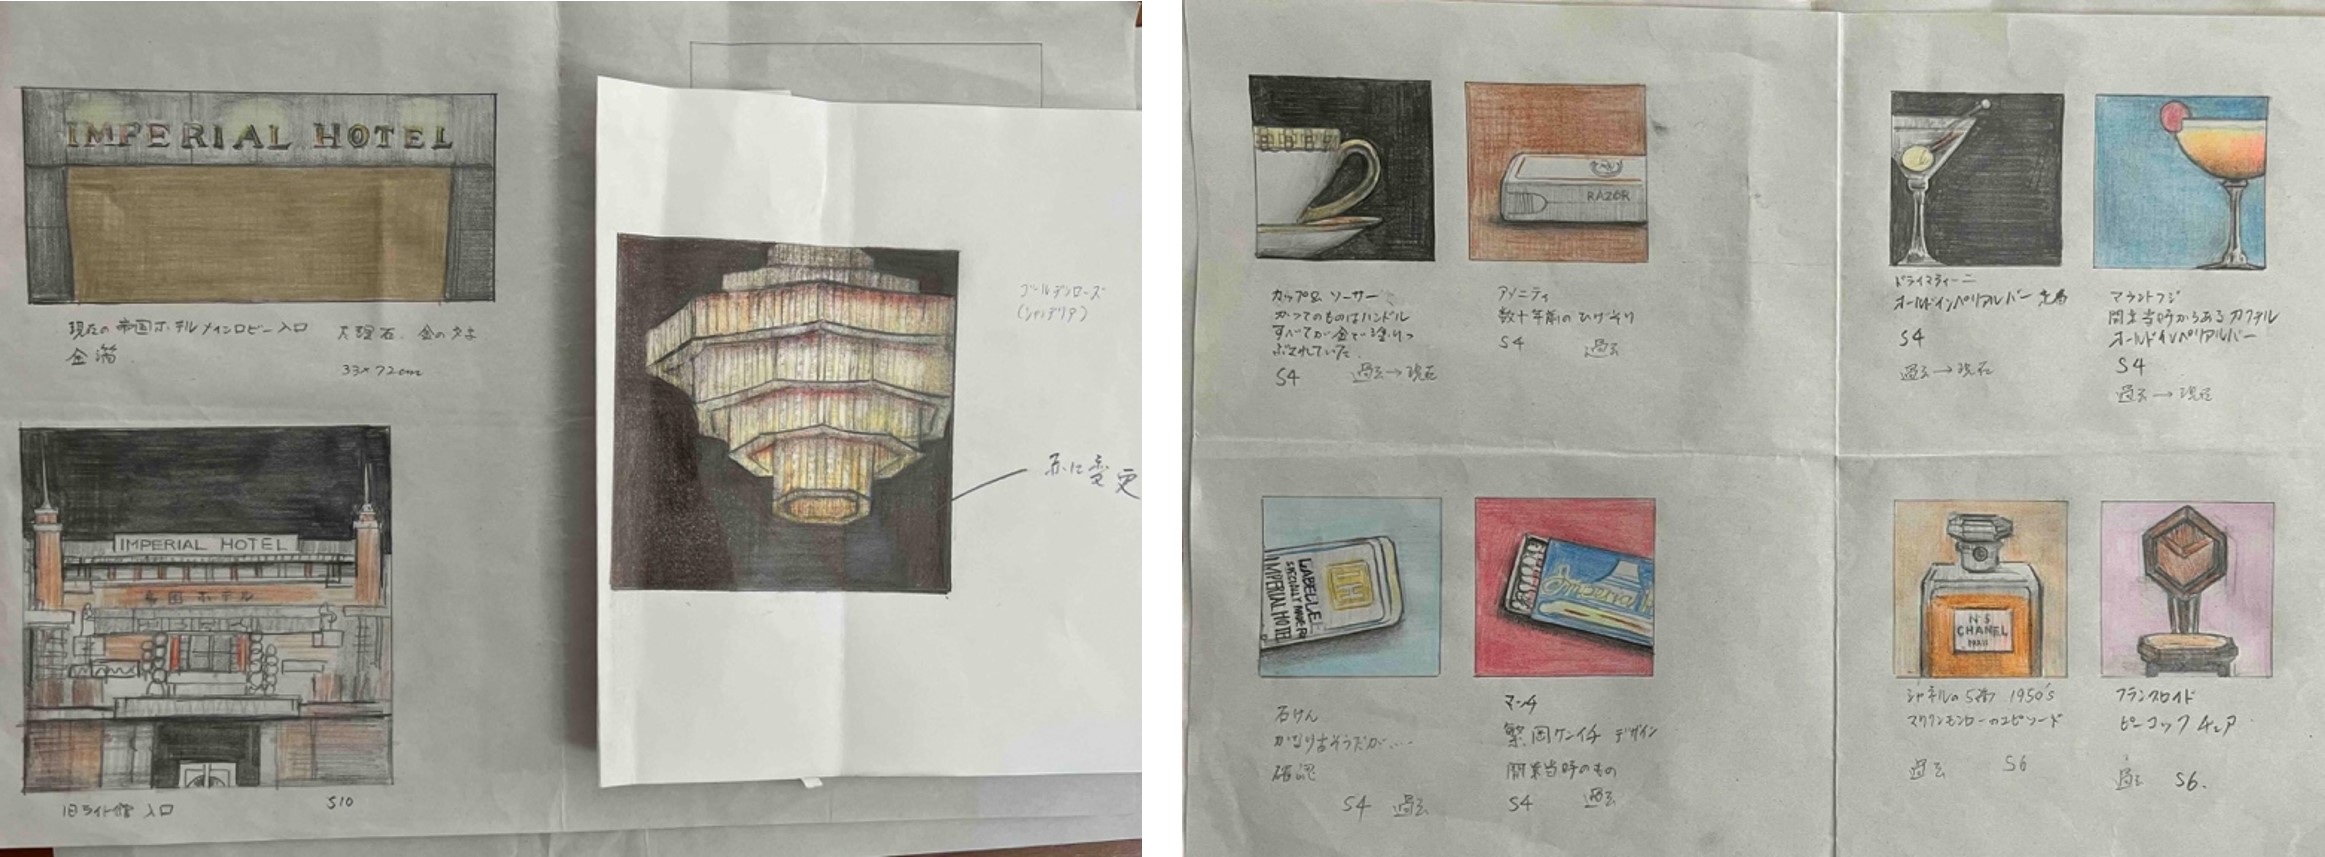 IMPERIAL HOTEL
現在の帝国ホテルメインロビー入口
金箔
大理石、金の文字
33×72cm
IMPERIAL HOTEL
帝国ホテル
旧ライト館 入口
S10
ゴールデンローズ
(シャンデリア)
に変更
カップ&ソーサー
かつてのものはハンドル
すべてが金で塗りつ
ぶされていた。
S4 過去→現在
RAZOR
アメニティ
数十年前のひげそり
S4 過去
ドライマティーニ
オールドインペリアルバー
S4
過去→現在
マウントフジ
開業当時からあるカクテル
オールドインペリアルバー
S4
過去→現在
LABELLE
SPECIALLY MADE FOR
IMPERIAL HOTEL
石けん
かなり古そうだが‥‥
確認
S4 過去
Imperial H
マッチ
繁岡ケンイチ デザイン
開業当時のもの
S4 過去
N°5
CHANEL
PARIS
シャネルの5番 1950's
マリリンモンローのエピソード
過去 S6
フランクロイド
ピーコックチェア
過去 S6.